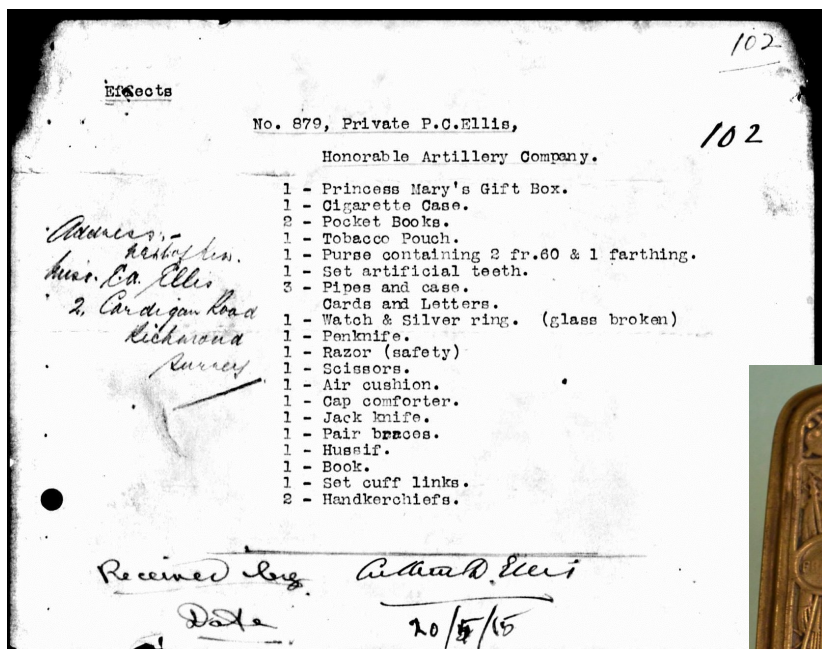 102
Effects
No. 879, Private P.C.Ellis,
102
Honorable Artillery Company.
1 - Princess Mary's Gift Box.
1 - Cigarette Case.
2 - Pocket Books.
1 - Tobacco Pouch.
1 - Purse containing 2 fr.60 & 1 farthing.
1 - Set artificial teeth.
3 - Pipes and case.
Cards and Letters.
1 - Watch & Silver ring. (glass broken)
1 - Penknife.
1 - Razor (safety)
1 - Scissors.
1 - Air cushion.
1 - Cap comforter.
1 - Jack knife.
1 - Pair braces.
1 - Hussif.
1 - Book.
1 - Set cuff links.
2 - Handkerchiefs.
Address:-
next of kin.
Miss. E.A. Ellis
2, Cardigan Road
Richmond
Surrey
Received by Arthur D. Ellis
Date 20/5/15